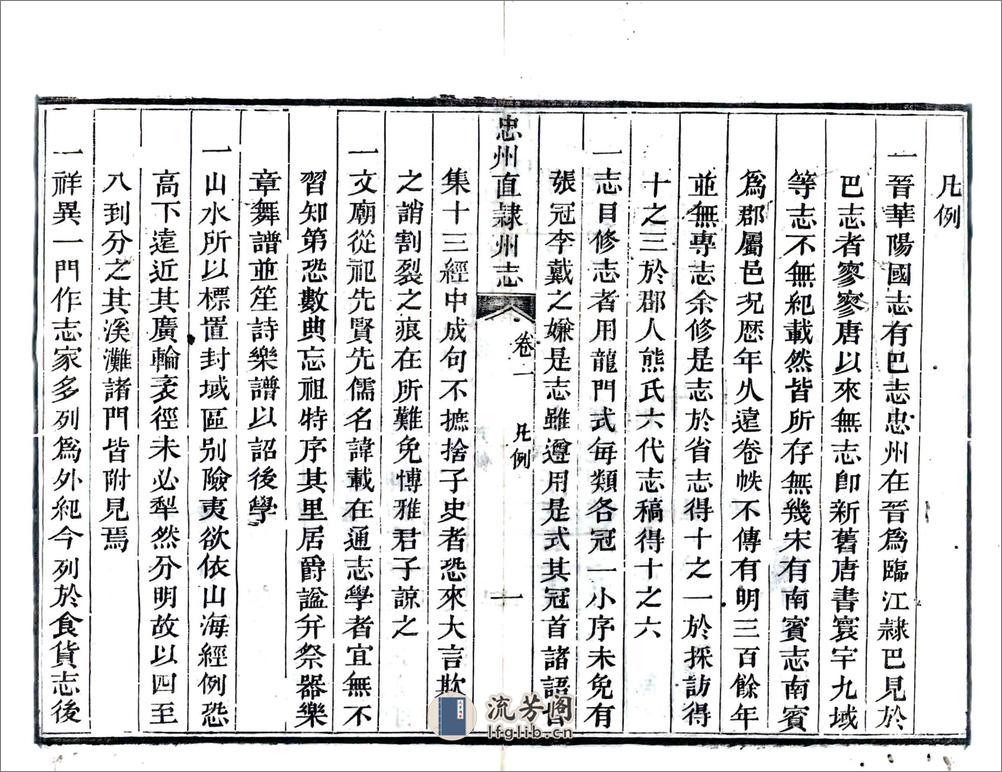 凡例
一晉華陽國志有巴志忠州在晉爲臨江隷巴見於
巴志者寥寥唐以來無志卽新舊唐書寰宇九域
等志不無紀載然皆所存無幾宋有南賓志南賓
爲郡屬邑况歴年久遠卷帙不傳有明三百餘年
並無專志余修是志於省志得十之一於採訪得
十之三於郡人熊氏六代志稿得十之六
一志目修志者用龍門式每類各冠一小序未免有
張冠李戴之嫌是志雖遵用是式其冠首諸語
忠州直隷州志
卷
凡例
一
集十三經中成句不摭捨子史者恐來大言欺
之誚割裂之痕在所難免博雅君子諒之
一文廟從祀先賢先儒名諱載在通志學者宜無不
習知第恐數典忘祖特序其里居爵謚并祭器樂
章舞譜並笙詩樂譜以詔後學
一山水所以標置封域區别險夷欲依山海經例恐
高下遠近其廣輪袤徑未必犁然分明故以四至
八到分之其溪灘諸門皆附見焉
一祥異一門作志家多列爲外紀今列於食貨志後
流芳阁
lfglib.cn